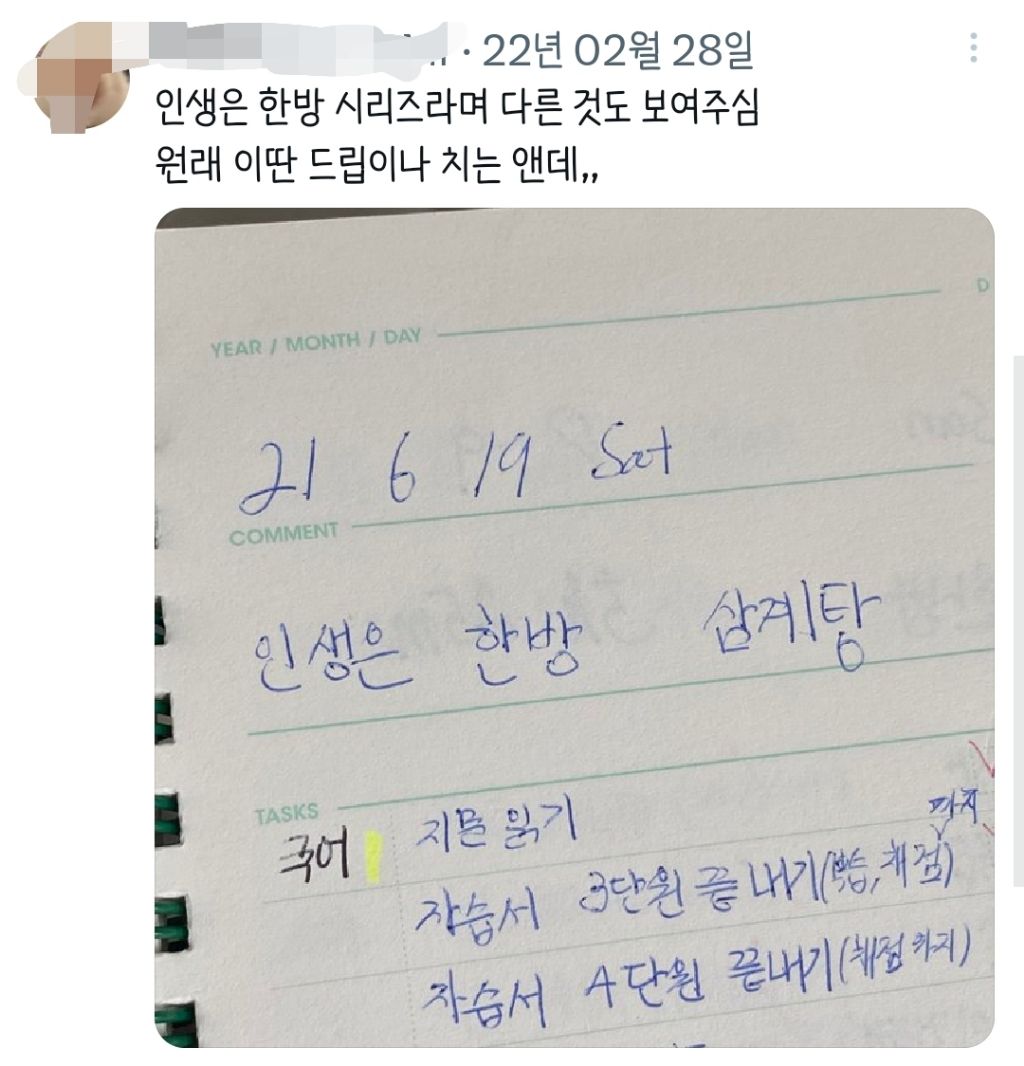 · 22년 02월 28일
인생은 한방 시리즈라며 다른 것도 보여주심
원래 이딴 드립이나 치는 앤데,,
D
YEAR / MONTH / DAY
21 6 19 Sat
COMMENT
인생은 한방 삼계탕
TASKS
국어 지문 읽기
까지
자습서 3단원 끝내기(복습,채점)
자습서 4단원 끝내기(채점까지)